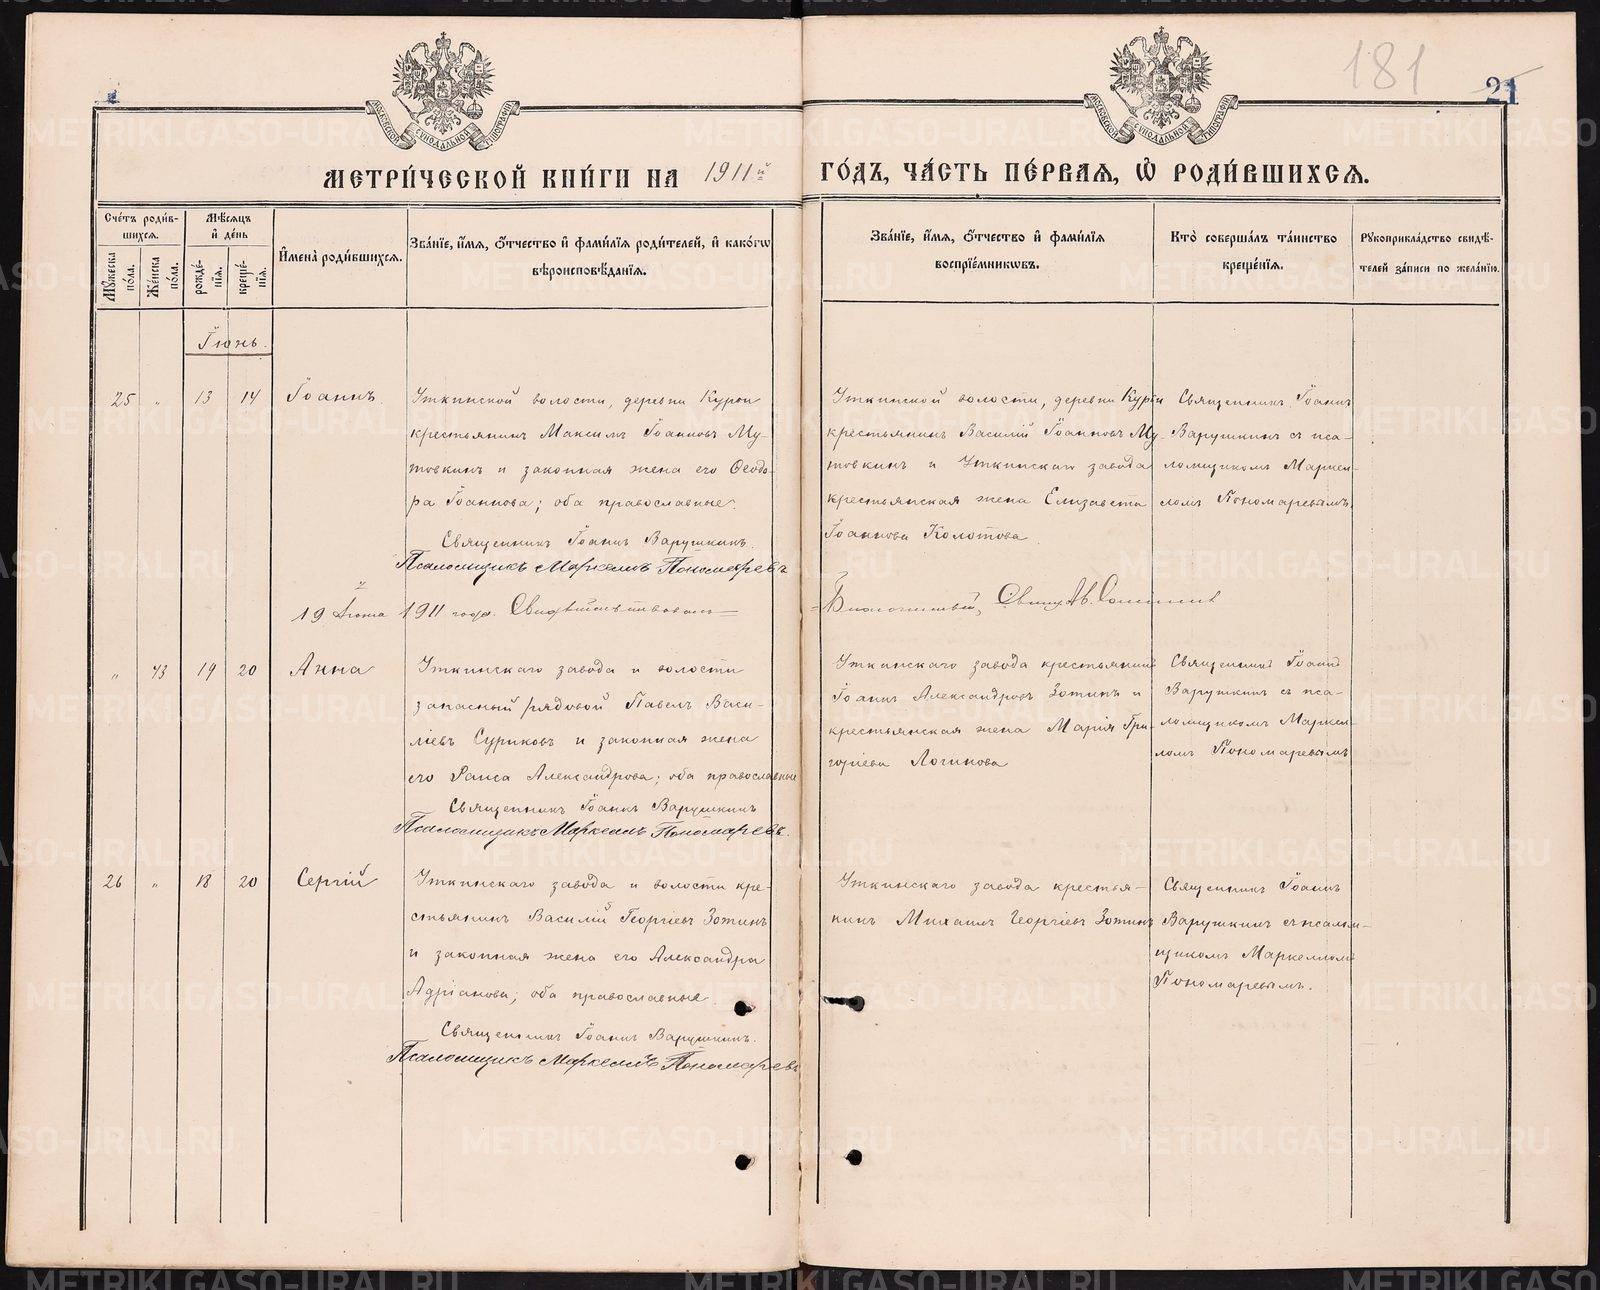 181
21
МОСКОВСКОЙ СѴНОДАЛЬНОЙ ТИПОГРАФІИ
МОСКОВСКОЙ СѴНОДАЛЬНОЙ ТИПОГРАФІИ
МЕТРИ́ЧЕСКОЙ КНИ́ГИ НА 1911й ГО́ДЪ, ЧА́СТЬ ПЕ́РВАѦ, Ѽ РОДИ́ВШИХСѦ.
Сче́тъ роди́в-
шихсѧ.
Мꙋ́жеска по́ла.
Же́нска по́ла.
Мѣ́сѧцъ
и҆ де́нь
рожде́-
нїѧ.
креще́-
нїѧ.
И҆мена̀ роди́вшихсѧ.
Зва́нїе, и҆́мѧ, ѻ҆́тчество и҆ фами́лїѧ роди́телей, и҆ како́гѡ
вѣроисповѣ́данїѧ.
Зва́нїе, и҆́мѧ, ѻ҆́тчество и҆ фами́лїѧ
воспрїе́мникѡвъ.
Кто̀ соверша́лъ та́инство
креще́нїѧ.
Рꙋкоприкла́дство свидѣ́-
телей за́писи по жела́нїю.
Іюнь.
25 " 13 14 Іоаннъ.
Уткинской волости, деревни Курьи
крестьянинъ Максимъ Іоанновъ Му-
товкинъ и законная жена его Ѳеодо-
ра Іоаннова; оба православные.
Священникъ Іоаннъ Варушкинъ.
Псаломщикъ Маркеллъ Пономаревъ
Уткинской волости, деревни Курьи
крестьянинъ Василій Іоанновъ Му-
товкинъ и Уткинскаго завода
крестьянская жена Елизавета
Іоаннова Колотова.
Священникъ Іоаннъ
Варушкинъ съ пса-
ломщикомъ Маркел-
ломъ Пономаревымъ.
19 Іюня 1911 года. Свидѣтельствовалъ
Благочинный, Свящ. Ав.
" 43 19 20 Анна
Уткинскаго завода и волости
запасный рядовой Павелъ Васи-
ліевъ Суриковъ и законная жена
его Раиса Александрова; оба православные
Священникъ Іоаннъ Варушкинъ
Псаломщикъ Маркеллъ Пономаревъ.
Уткинскаго завода крестьянинъ
Іоаннъ Александровъ Зотинъ и
крестьянская жена Марія Гри-
горіева Логинова
Священникъ Іоаннъ
Варушкинъ съ пса-
ломщикомъ Маркел-
ломъ Пономаревымъ
26 " 18 20 Сергій
Уткинскаго завода и волости кре-
стьянинъ Василій Георгіевъ Зотинъ
и законная жена его Александра
Адріанова; оба православные.
Священникъ Іоаннъ Варушкинъ.
Псаломщикъ Маркеллъ Пономаревъ
Уткинскаго завода крестья-
нинъ Михаилъ Георгіевъ Зотинъ
Священникъ Іоаннъ
Варушкинъ съ псалом-
щикомъ Маркелломъ
Пономаревымъ.
METRIKI.GASO-URAL.RU